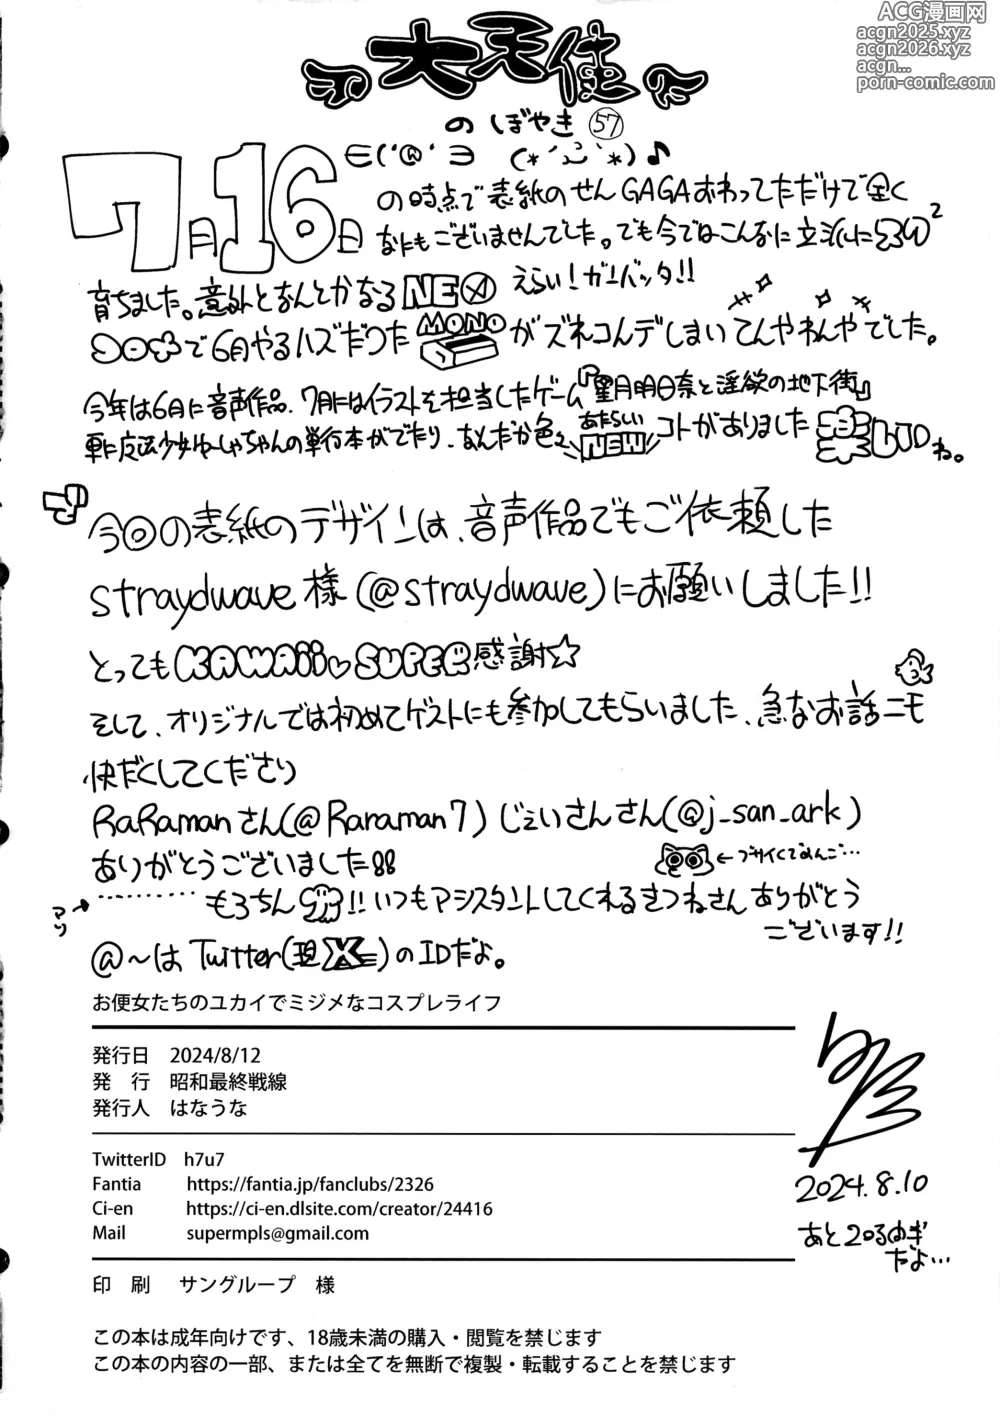 ACG漫画网
acgn2025.xyz
acgn2026.xyz
acgn...
porn-comic.com
大天使
の ぼやき 57
7月16日
の時点で表紙のせんGAGAおわってただけで全く
なにもございませんでした。でも今ではこんなに立派に
育ちました。意外となんとかなる えらい!ガンバッタ!!
で6月やるハズだった MONO がズレコンデしまい てんやわんや でした。
今年は6月に音声作品、7月にはイラストを担当したゲーム『星月明日奈と淫欲の地下街』
ちゃんの単行本がでたり、なんだか色々 あたらしい NEW コトがありました
ね。
今回の表紙のデザインは、音声作品でもご依頼した
straydwave様(@straydwave)にお願いしました!!
とっても KAWAii♡SUPER感謝☆
そして、オリジナルでは初めてゲストにも参加してもらいました、急なお話ニモ
快だくしてくださり
RaRamanさん(@Raraman7) じぇいさんさん(@j_san_ark)
ありがとうございました
←ブサイくでめんご…
もろちん !! いつもアシスタントしてくれるきつねさん ありがとう
ございます!!
@~は Twitter(現X)のIDだよ。
お便女たちのユカイでミジメなコスプレライフ
発行日 2024/8/12
発 行 昭和最終戦線
発行人 はなうな
TwitterID h7u7
Fantia https://fantia.jp/fanclubs/2326
Ci-en https://ci-en.dlsite.com/creator/24416
Mail supermpls@gmail.com
2024.8.10
あと20
だよ…
印 刷 サングループ 様
この本は成年向けです、18歳未満の購入・閲覧を禁じます
この本の内容の一部、または全てを無断で複製・転載することを禁じます